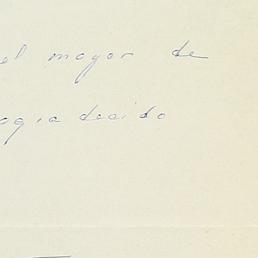 el mayor de
ogia decido